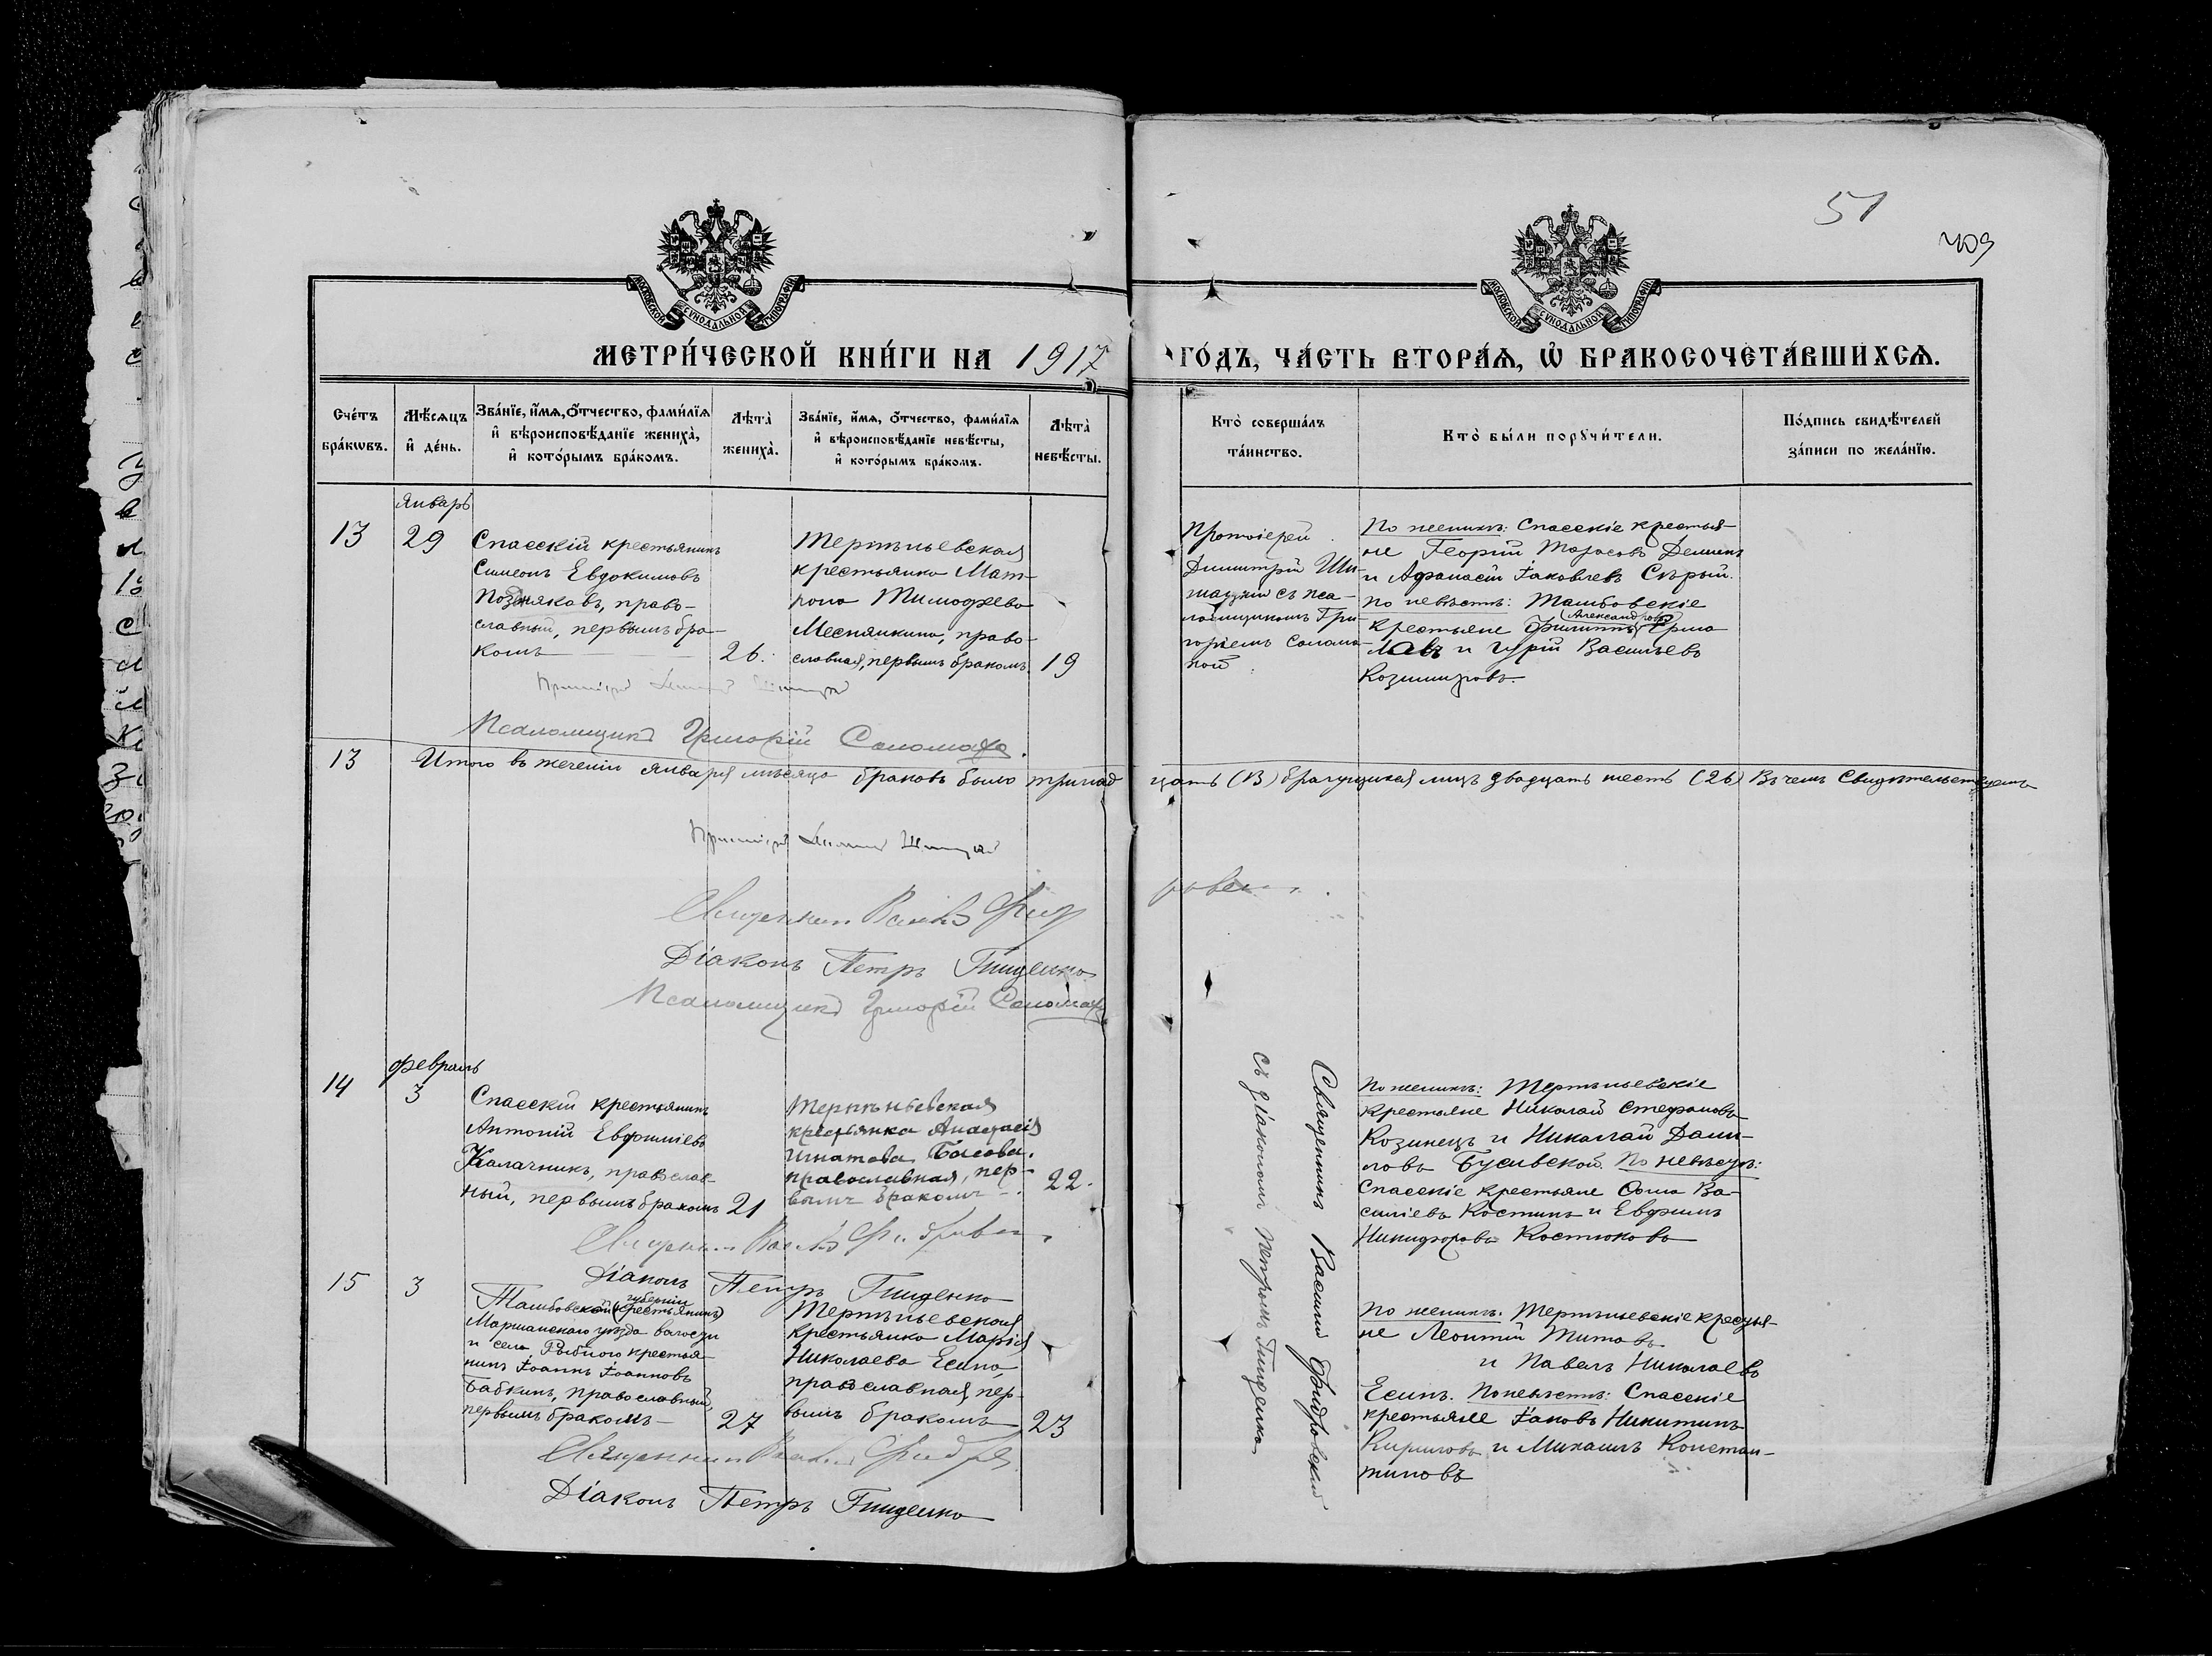 51
409
МОСКОВСКОЙ СѴНОДАЛЬНОЙ ТИПОГРАФІИ
МОСКОВСКОЙ СѴНОДАЛЬНОЙ ТИПОГРАФІИ
МЕТРИ́ЧЕСКОЙ КНИ́ГИ НА 1917
ГО́ДЪ, ЧА́СТЬ ВТОРА́Ѧ, Ѡ҆ БРАКОСОЧЕТА́ВШИХСѦ.
Сче́тъ бра́кѡвъ.
Мѣ́сѧцъ и҆ де́нь.
Зва́нїе, и҆́мѧ, ѻ҆́тчество, фами́лїѧ
и҆ вѣроисповѣ́данїе жениха̀,
и҆ кото́рымъ бра́комъ.
Лѣ́та̀ жениха̀.
Зва́нїе, и҆́мѧ, ѻ҆́тчество, фами́лїѧ
и҆ вѣроисповѣ́данїе невѣ́сты,
и҆ кото́рымъ бра́комъ.
Лѣ́та̀ невѣ́сты.
Кто̀ соверша́лъ та́инство.
Кто̀ бы́ли порꙋчи́тели.
По́дпись свидѣ́телей
за́писи по жела́нїю.
Январь
13
29
Спасскій крестьянинъ
Симеонъ Евдокимовъ
Позняковъ, право-
славный, первымъ бра-
комъ
26.
Тертньевская
крестьянка Мат-
рона Тимофеева
право-
славная, первымъ бракомъ
19
Протоіерей
Димитрій Ши-
съ пса-
ломщикомъ Гри-
горіемъ Солома-
хой
По женихѣ: Спасскіе крестья-
не Георгій Тарасовъ Деминъ
и Афанасій Іаковлевъ Сѣрый.
По невѣстѣ: Тамбовскіе
Александровъ
крестьяне Филиппъ Ермо
лаевъ и Гурій Васильевъ
Казимировъ.
Псаломщикъ Григорій Соломаха.
13
Итого въ теченіи января мѣсяца браковъ было тринад
цать (13) брачущихся лицъ двадцать шесть (26) Въ чемъ свидѣтельствуемъ
Діаконъ Петръ Гнищенко
Псаломщикъ Григорій Соломаха
Февраль
14
3
Спасскій крестьянинъ
Антоній Евфиміевъ
Калачникъ, православ-
ный, первымъ бракомъ
21
крестьянка Анастасія
Игнатова Басова,
православная, пер-
вымъ бракомъ
22.
Священникъ Василій
съ діакономъ Петромъ Гнищенко
По женихѣ:
крестьяне Николай Стефановъ
Козинецъ и Николай Дани-
ловъ Бусивской. По невѣстѣ:
Спасскіе крестьяне Ѳома Ва-
силіевъ Костинъ и Евфимъ
Никифоровъ Костюковъ
Діаконъ Петръ Гнищенко
15
3
губерніи
Тамбовской (крестьянинъ)
Моршанскаго уѣзда волости
и села Рыбного крестья-
нинъ Іоаннъ Іоанновъ
Бабкинъ, православный,
первымъ бракомъ
27
крестьянка Марія
Николаева Есина,
православная, пер-
вымъ бракомъ
23
По женихѣ: крестья-
не Леонтій Титовъ
и Павелъ Николаевъ
Есинъ. По невѣстѣ: Спасскіе
крестьяне Іаковъ Никитинъ
Кириловъ и Михаилъ Констан-
тиновъ
Діаконъ Петръ Гнищенко